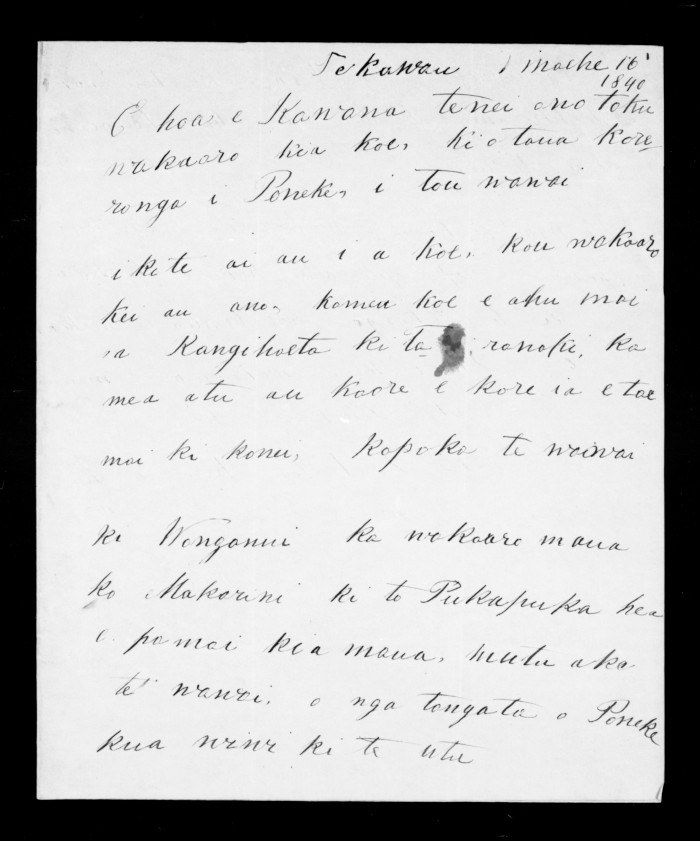 Te kawau 1 maehe 16
1840
E hoa e Kawana tenei ano toku
wakaaro kia koe, ki o taua kore-
ronga i Poneke, i tou wawai
i kite ai au i a koe, kou wakaaro
kei au ano, komea koe e ahu mai
a Rangihaeta ki ranapi, ka
mea atu au kaore e kore ia e tae
mai ki konei, kapoka te waiwai
ki Wanganui ka wakaaro maua
ko Makarini ki te Pukapuka hea
e pa mai kia maua, mutu aka
te wawai, o nga tangata o Poneke
kua wiwi ki te utu